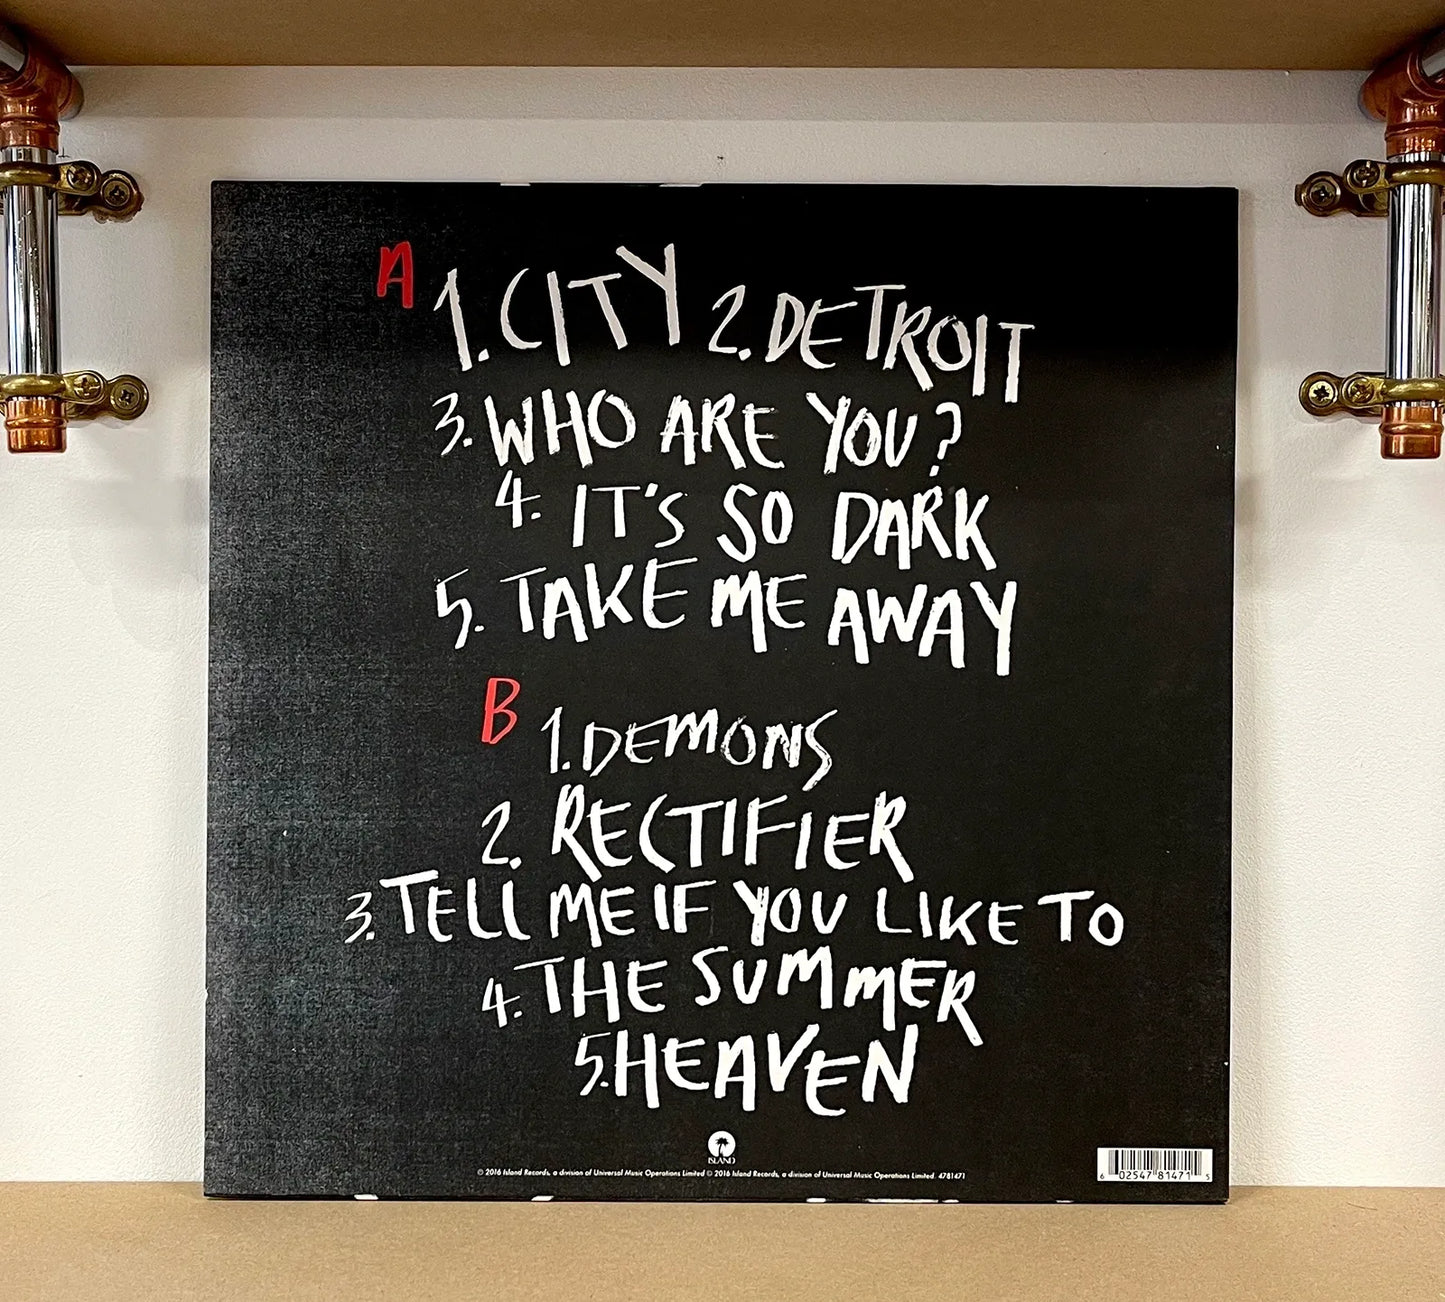 A
1. CITY 2. DETROIT
3. WHO ARE YOU?
4. IT'S SO DARK
5. TAKE ME AWAY
B
1. DEMONS
2. RECTIFIER
3. TELL ME IF YOU LIKE TO
4. THE SUMMER
5. HEAVEN
ISLAND
℗ 2016 Island Records, a division of Universal Music Operations Limited © 2016 Island Records, a division of Universal Music Operations Limited. 4781471
6 02547 81471 5